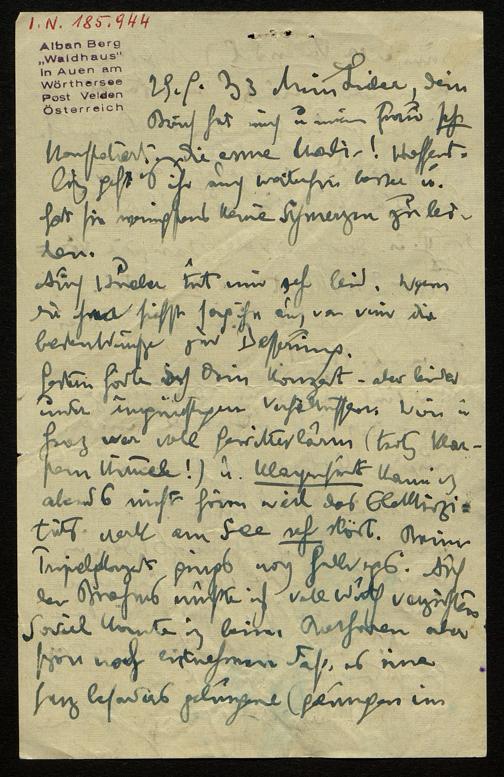 I.N. 185.944
Alban Berg
„Waldhaus"
in Auen am
Wörthersee
Post Velden
Österreich
33 Mein Lieber, dein
hat mich u meine Frau sehr
die arme Mädi-! Hoffent-
lich geht's ihr auch weiterhin besser u.
hat sie wenigstens keine Schmerzen zu lei-
den.
Auch tut mir sehr leid. Wenn
du siehst sag ihr auch von mir die
besten Wünsche zur Besserung.
Gestern hörte ich Dein Konzert - aber leider
unter ungünstigen Verhältnissen. Wien u
Graz war voll Gewitterlärm (trotz kla-
rem Himmel!) u. Klagenfurt kann ich
abends nicht hören weil das Elektrizi-
tätswerk am See sehr stört. Beim
Tripelkonzert gings noch halbwegs. Auf
den Brahms mußte ich verzichten
Soviel konnte ich beim Beethoven aber
schon noch entnehmen daß es eine
ganz besonders gelungene (gelungen im